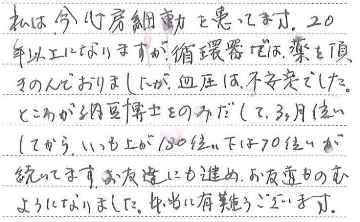 私は、今心房細動を患ってます。20
年以上になりますが、循環器では、薬を頂
きのんでおりましたが、血圧は、不安定でした。
ところが納豆博士をのみだして、3ヶ月位い
してから、いつも上が130位い、下は70位いが
続いてます。お友達にも進め、お友達ものむ
ようになりました。本当に有難うございます。